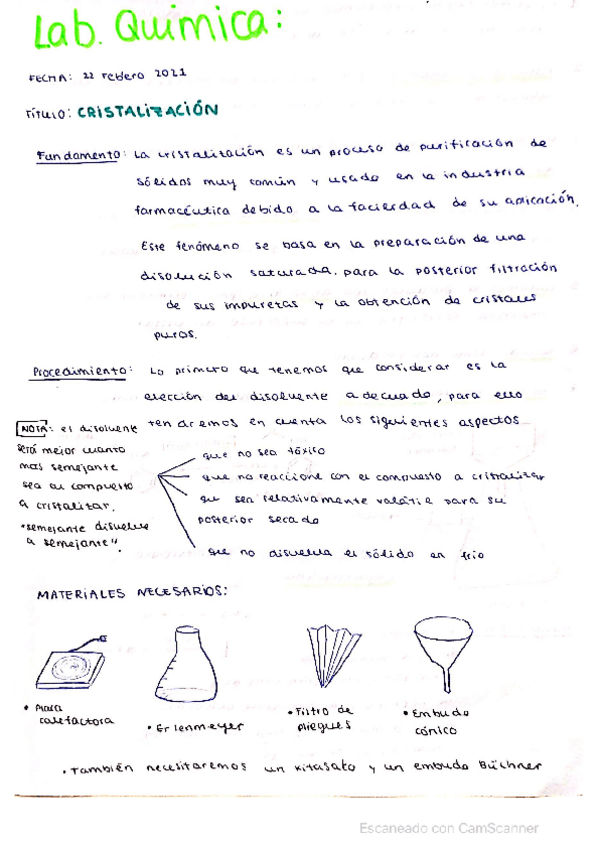 Lab. Química:
FECHA: 22 Febrero 2021
TÍTULO: CRISTALIZACIÓN
Fundamento: La cristalización es un proceso de purificación de
sólidos muy común y usado en la industria
farmacéutica debido a la facilidad de su aplicación.
Este fenómeno se basa en la preparación de una
disolución saturada, para la posterior filtración
de sus impurezas y la obtención de cristales
puros.
Procedimiento: Lo primero que tenemos que considerar es la
elección del disolvente adecuado, para ello
tendremos en cuenta los siguientes aspectos
NOTA: el disolvente
será mejor cuanto
más semejante
sea al compuesto
a cristalizar.
"semejante disuelve
a semejante".
que no sea tóxico
que no reaccione con el compuesto a cristalizar
que sea relativamente volátil para su
posterior secado
que no disuelva el sólido en frío
MATERIALES NECESARIOS:
• Placa
calefactora
• Erlenmeyer
• Filtro de
pliegues
• Embudo
cónico
• También necesitaremos un kitasato y un embudo Büchner
Escaneado con CamScanner